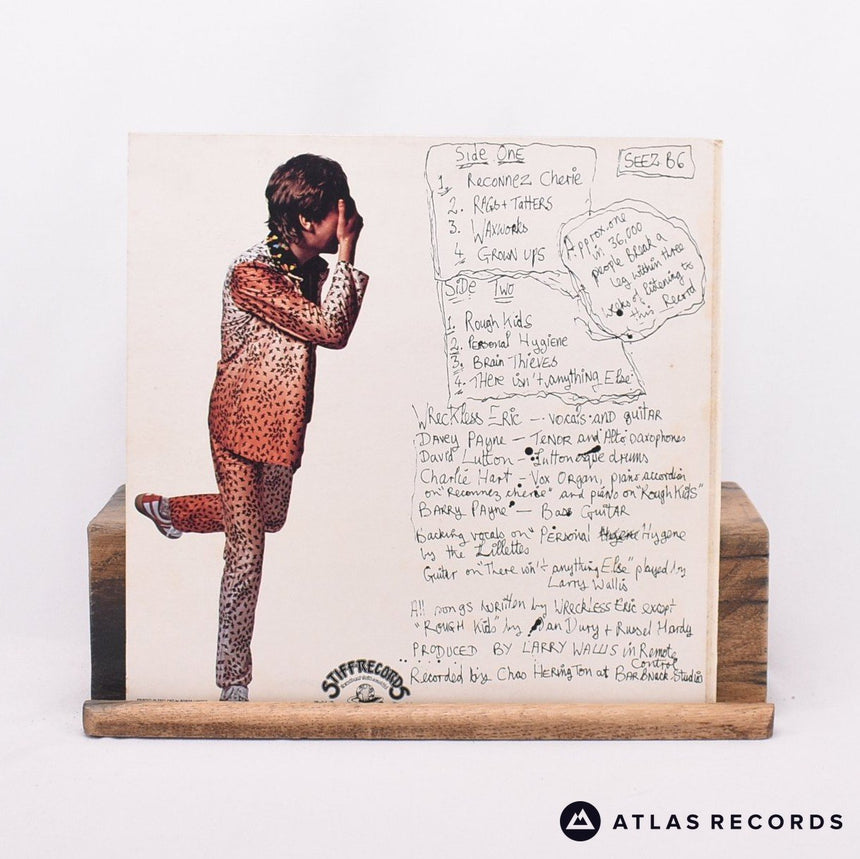 Side One
SEEZ B6
1. Reconnez Cherie
2. RAGS + TATTERS
3. WAXWORKS
4. GROWN UPS
Approx. one
in 36,000
people Break a
leg within three
weeks of listening to
this Record
Side Two
1. Rough Kids
2. Personal Hygiene
3. Brain Thieves
4. There isn't anything Else
Wreckless Eric - vocals and guitar
Davey Payne - Tenor and Alto Saxophones
David Lutton - Luttonesque drums
Charlie Hart - Vox Organ, piano accordion
on "reconnez cherie" and piano on "Rough Kids"
BARRY PAYNE - Bass Guitar
Backing vocals on "Personal Hygene
by the Lillettes
Guitar on "There isn't anything Else" played by
Larry Wallis
All songs written by Wreckless Eric except
"Rough Kids" by Ian Dury + Russel Hardy
PRODUCED BY LARRY WALLIS in Remote
Control
Recorded by Chas Herington at BARBNECK Studio
STIFF RECORDS
ATLAS RECORDS